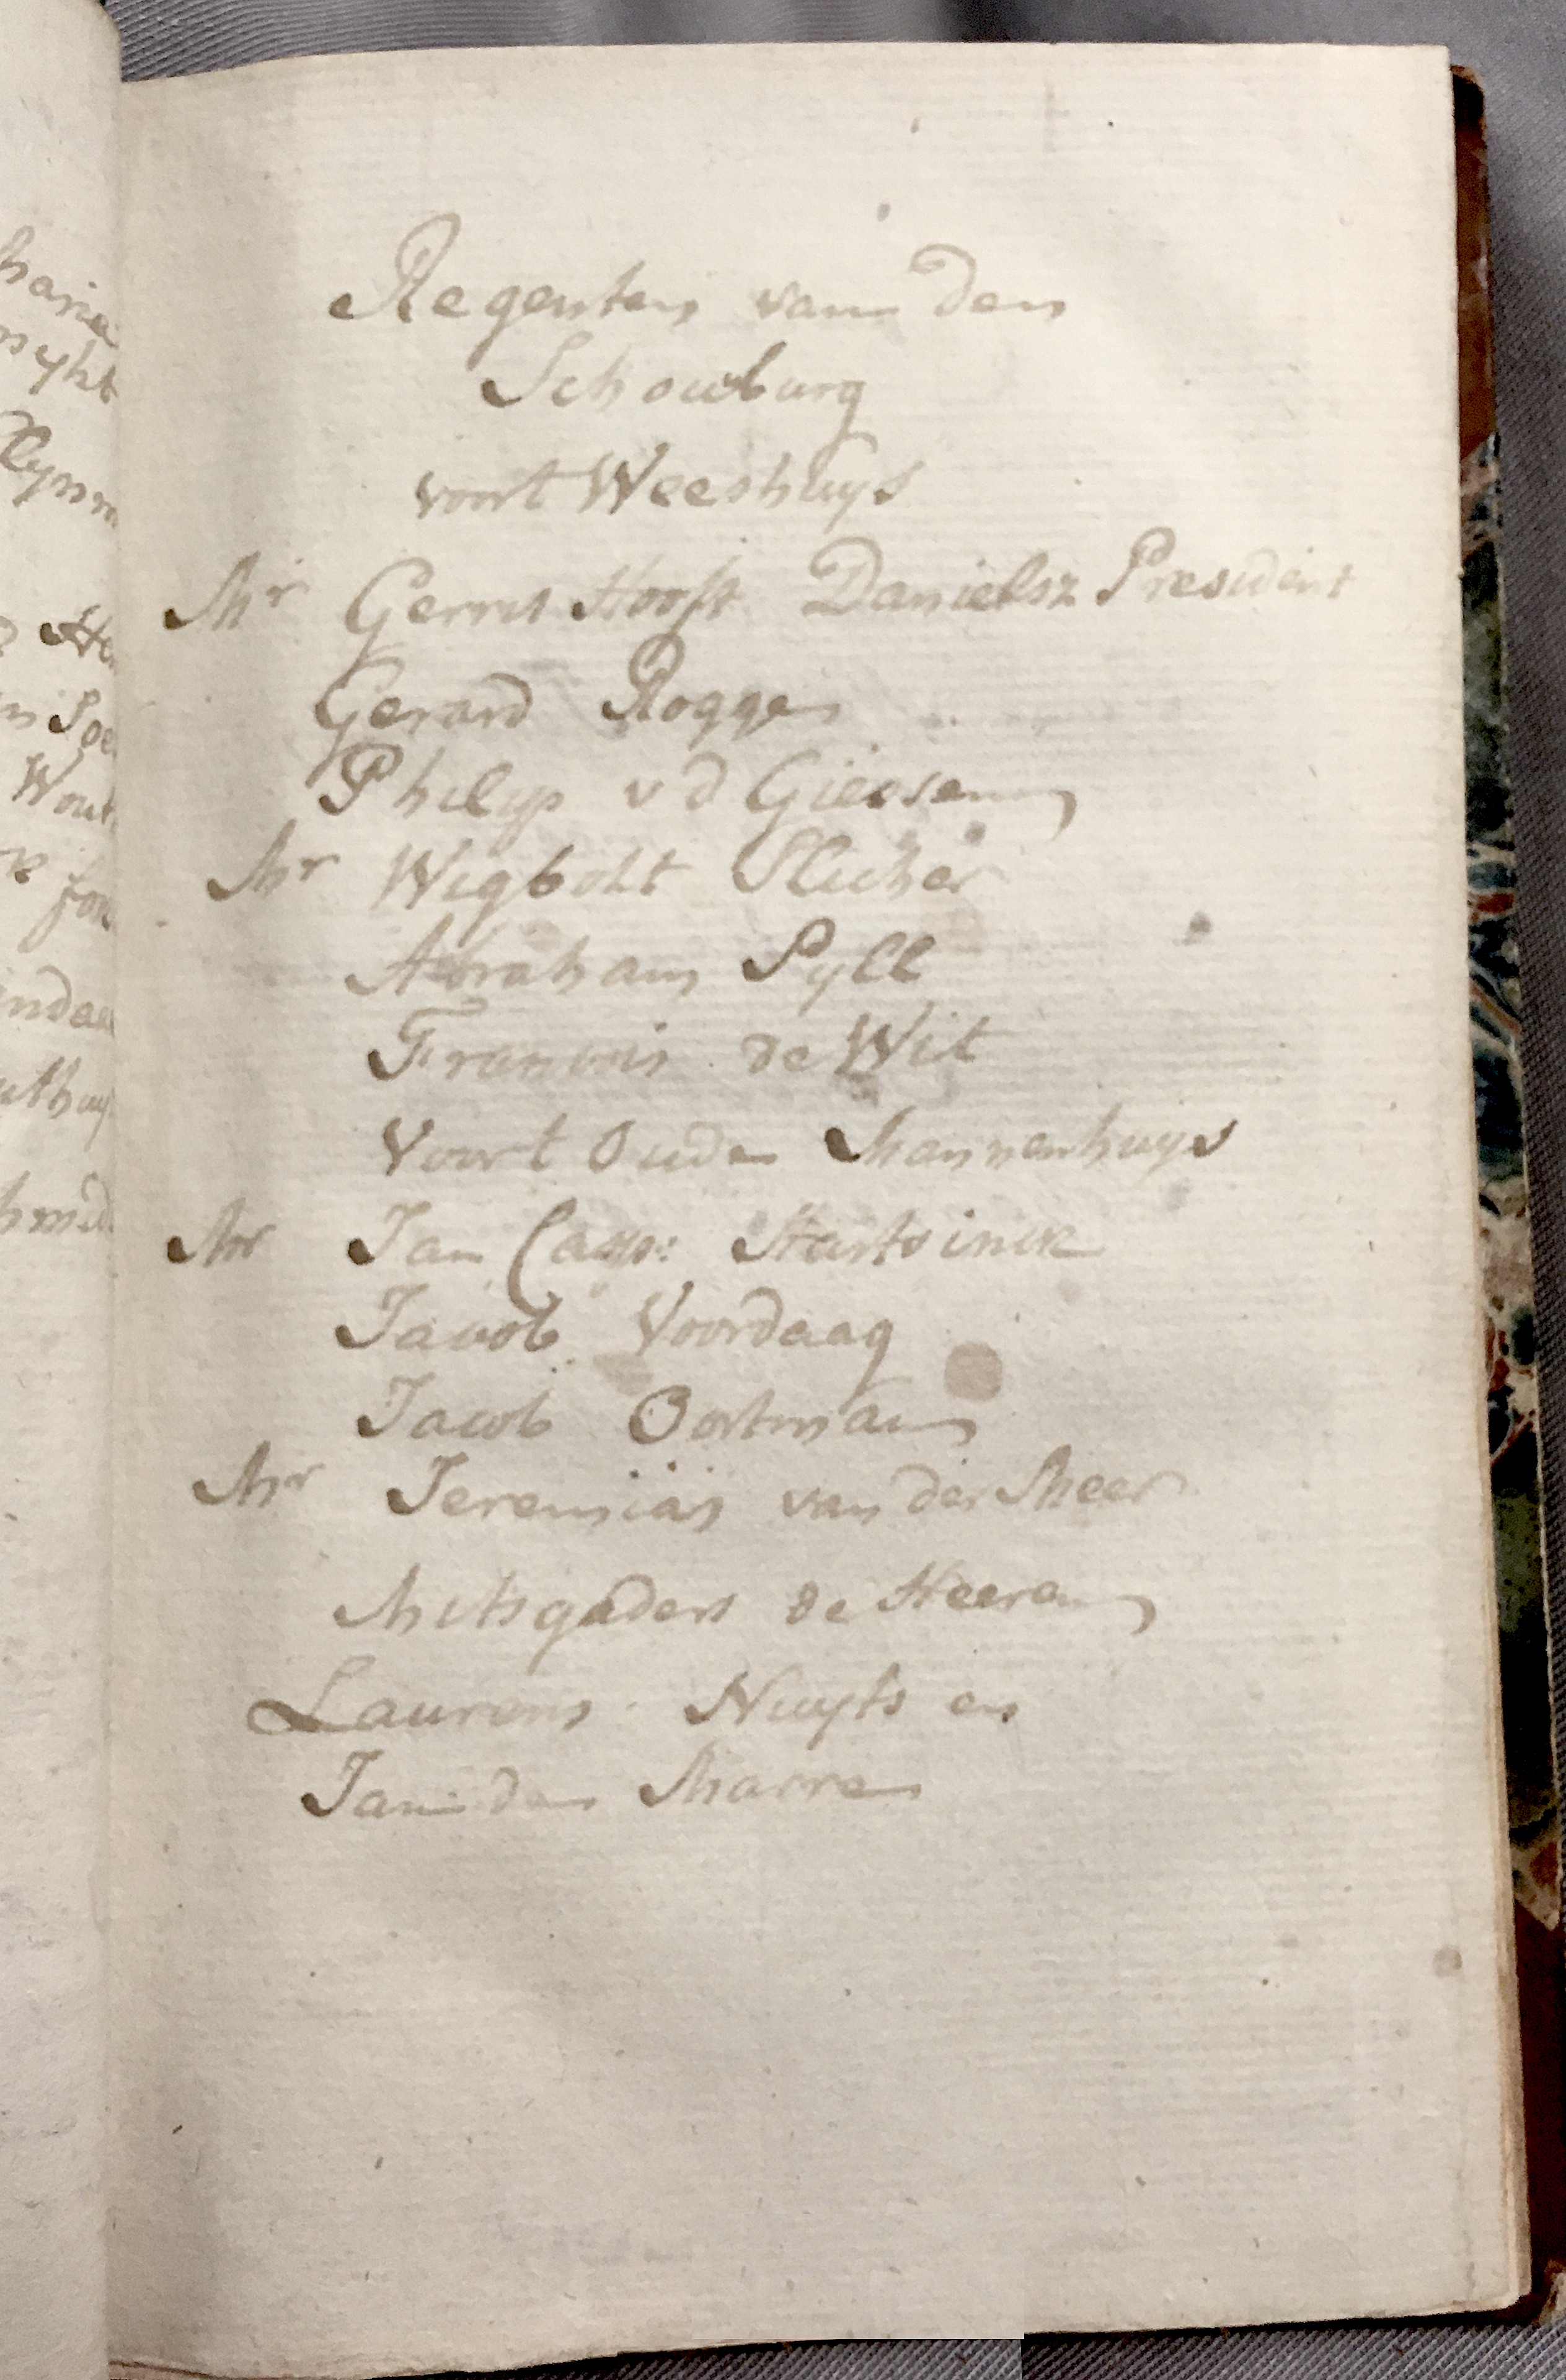 haria
nykt
Regenten van den
Schouburg
voort Weeshuys
Mr Gerrit Hooft Danielsz President
Gerard Rogge
Philip v d Giessen
Mr Wigbolt Slicher
Abraham Pyll
Francois de Wit
Voort Oude Mannenhuys
Mr Jan Casp: Hartsinck
Jacob Voordaag
Jacob Oortman
Mr Jeremias van der Meer
Mitsgaders de Heeren
Laurens Nuyts en
Jan de Marre